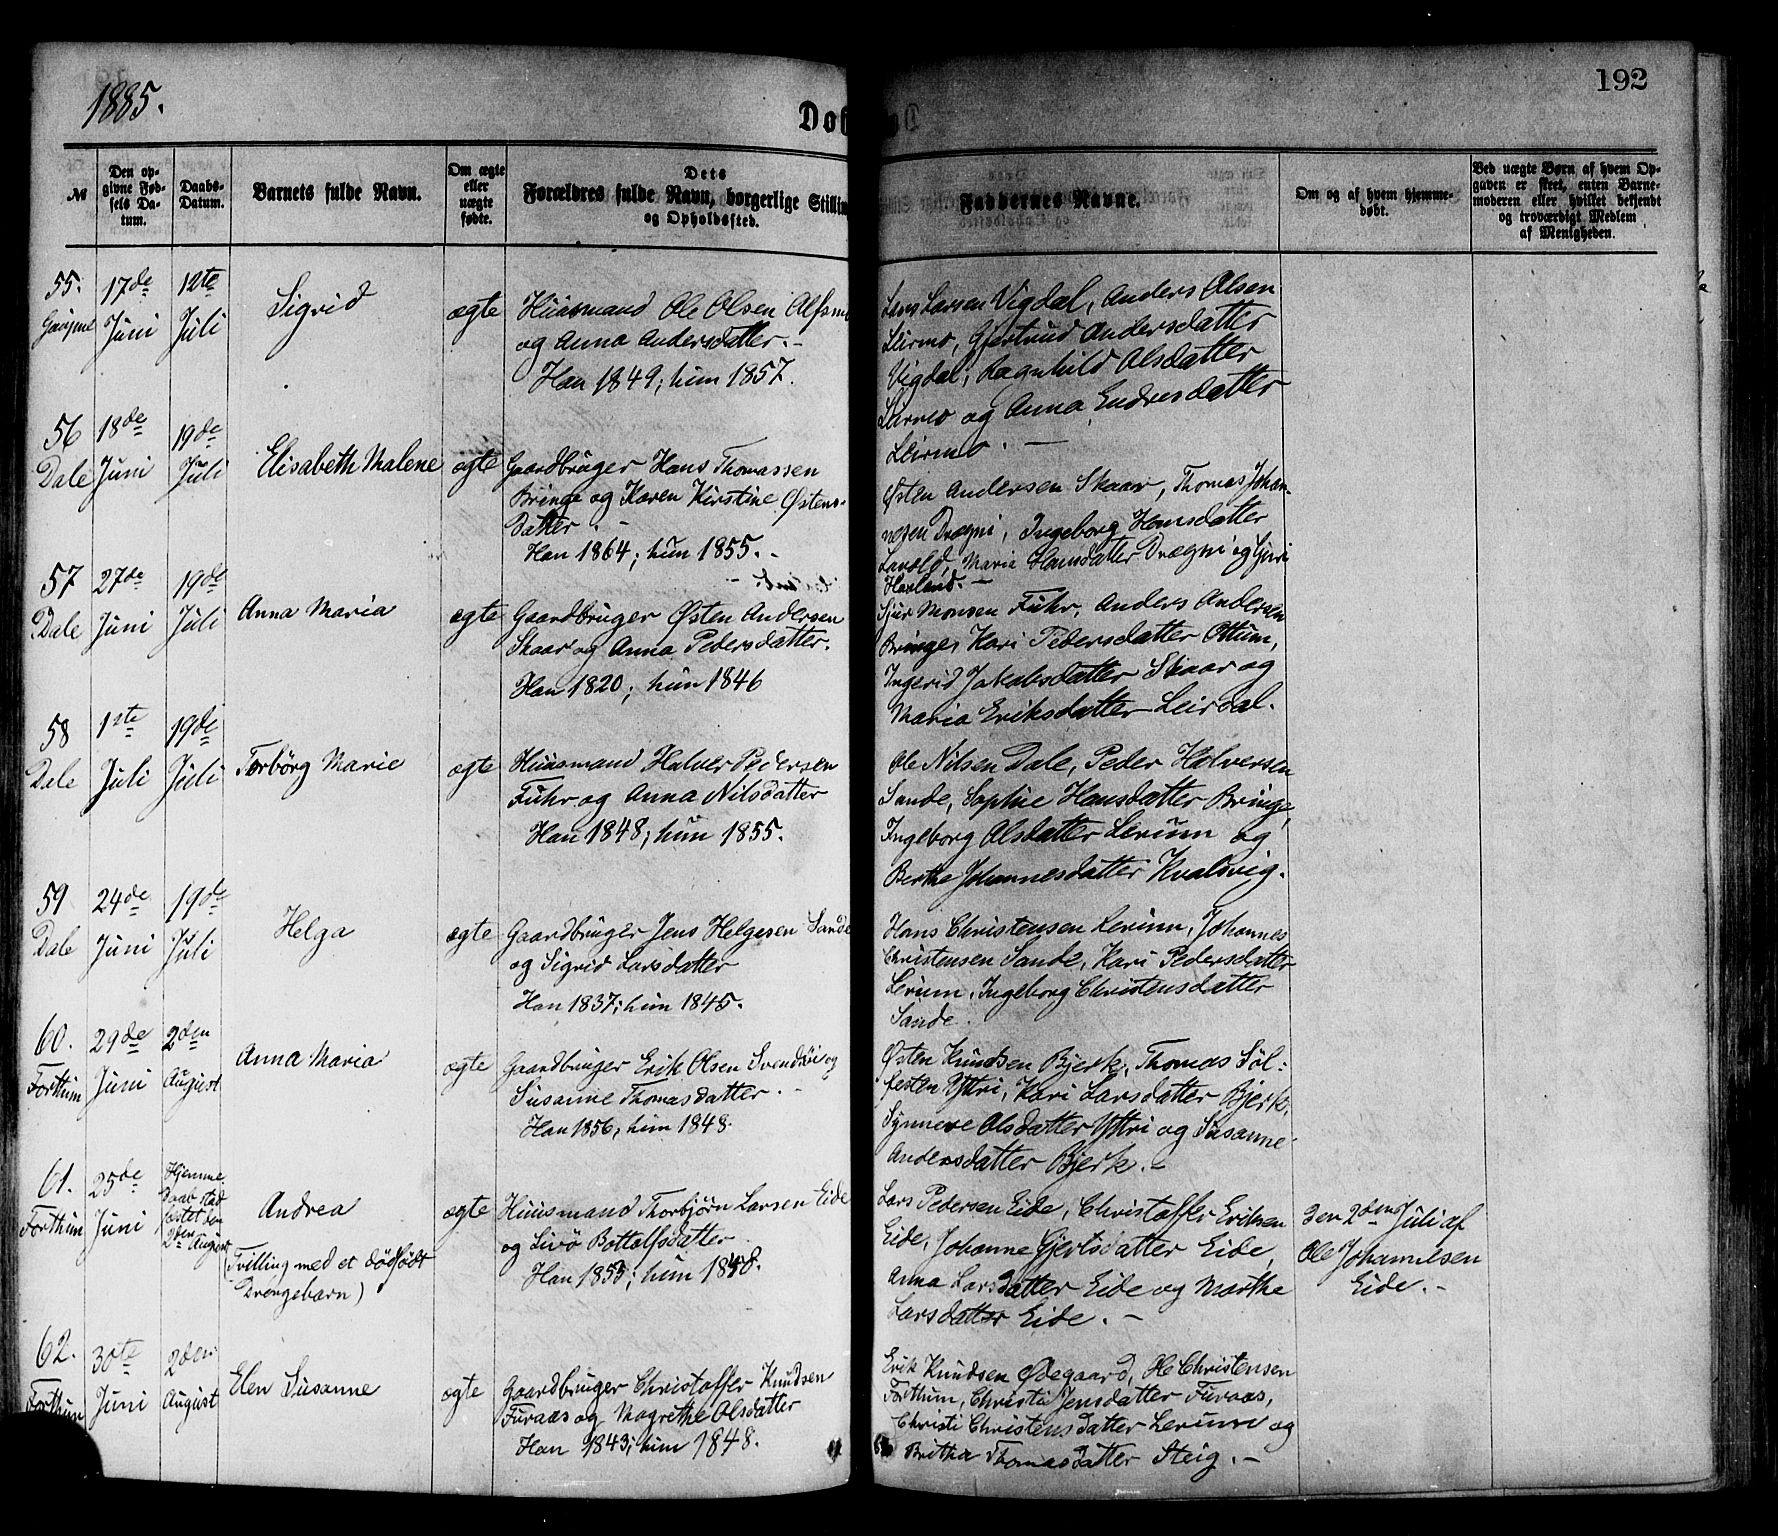 192
1885.
Døb
№
Den op-
givne Fød-
sels Da-
tum.
Daabs-
Datum.
Barnets fulde Navn.
Om ægte
eller
uægte
fødte.
Dets
Forældres fulde Navn, borgerlige Stillin
og Opholdssted.
Faddernes Navne.
Om og af hvem hjemme-
døbt.
Ved uægte Børn af hvem Op-
gaven er skeet, enten Barne-
moderen eller hvilket bekjendt
og troværdigt Medlem
af Menigheden.
55.
17de
Juni
12te
Juli
Sigrid
ægte
Huusmand Ole Olsen
og Anna Andersdatter. -
Han 1849; hun 1857.
Lars Larsen Vigdal, Anders Olsen
Leirmo, Gjertrud Andersdatter
Vigdal, Ragnhild Olsdatter
Leirmo og Anna Endresdatter
Leirmo. -
56
Dale
18de
Juni
19de
Juli
Elisabeth Malene
ægte
Gaardbruger Hans Thomassen
Bringe og Karen Kirstine Østens-
datter. -
Han 1864; hun 1855. -
Østen Andersen Skaar, Thomas Johan-
nesen Drægni, Ingeborg Hansdatter
Marie Hansdatter Drægni og
Haveland. -
57
Dale
27de
Juni
19de
Juli
Anna Maria
ægte
Gaardbruger Østen Andersen
Skaar og Anna Pedersdatter.
Han 1820; hun 1846
Sjur Monsen Fuhr, Anders Andersen
Bringe, Kari Pedersdatter Ottum,
Ingerid Jakobsdatter Skaar og
Maria Eriksdatter Leirdal.
58
Dale
1ste
Juli
19de
Juli
Torbörg Marie
ægte
Huusmand Halver Pedersen
Fuhr og Anna Nilsdatter
Han 1848; hun 1855.
Ole Nilsen Dale, Peder Halversen
Sande, Sophie Hansdatter Bringe,
Ingeborg Olsdatter Lerum og
Berthe Johannesdatter Kvalsvig.
59
Dale
24de
Juni
19de
Juli
Helga
ægte
Gaardbruger Jens Helgesen Sande
og Sigrid Larsdatter
Han 1837; hun 1845.
Hans Christensen Lerum, Johannes
Christensen Sande, Kari Pedersdatter
Lerum, Ingeborg Christensdatter
Sande.
60.
Forthun
29de
Juni
2den
August
Anna Maria
ægte
Gaardbruger Erik Olsen Svendsøi og
Susanne Thomasdatter. -
Han 1856; hun 1848.
Østen Knudsen Bjerk, Thomas Søl-
festen Yttri, Kari Larsdatter Bjerk,
Synneve Olsdatter Yttri og Susanne
Andersdatter Bjerk. -
61.
Forthun
25de
Juni
Hjemme
Daab stad
fæstet den
2den August
Andrea
(Tvilling med et dødfødt
Drengebarn)
ægte
Huusmand Thorbjørn Larsen Eide
og Livø Bottolfsdatter
Han 1855; hun 1848.
Lars Pedersen Eide, Christoffer Eriksen
Eide, Johanne Gjertsdatter Eide,
Anna Larsdatter Eide og Marthe
Larsdatter Eide. -
Den 2den Juli af
Ole Johannesen
Eide. -
62.
Forthun
30te
Juni
2den
August
Elen Susanne
ægte
Gaardbruger Christoffer Knudsen
Furaas og Magrethe Olsdatter
Han 1843; hun 1848.
Erik Knudsen Ødegaard, Ole Christensen
Forthun, Christi Jensdatter Furaas,
Christi Christensdatter Lerum og
Britha Thomasdatter Steig. -